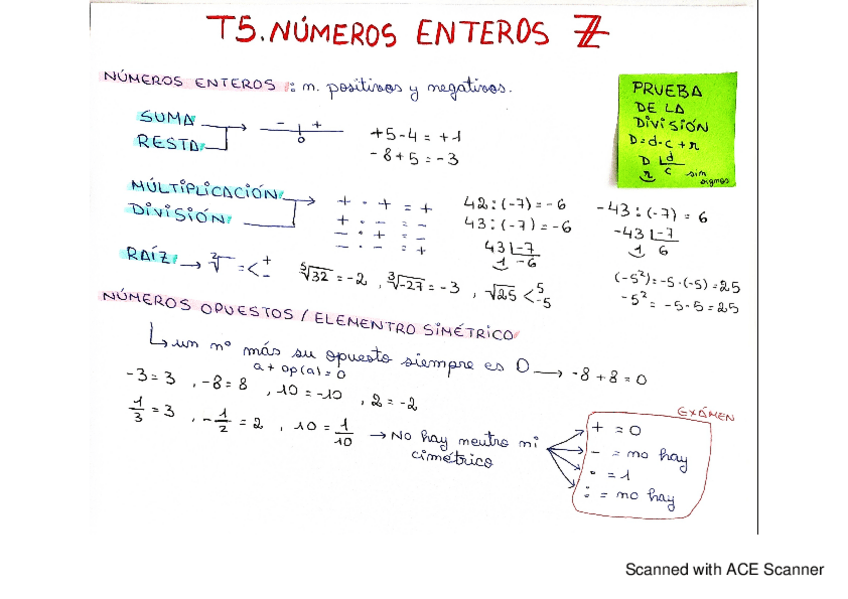 T5. NÚMEROS ENTEROS Z
NÚMEROS ENTEROS: n. positivos y negativos.
SUMA
RESTA
- +
0
+5-4 = +1
-8+5 = -3
PRUEBA
DE LA
DIVISIÓN
D=d·c+r
D d
r c
sin
signos
MÚLTIPLICACIÓN
DIVISIÓN
+ · + = +
+ · - = -
- · + = -
- · - = +
42:(-7) = -6
43:(-7) = -6
43 -7
1 -6
-43:(-7) = 6
-43 -7
1 6
RAÍZ → ²√ = < + -
⁵√32 = -2 , ³√-27 = -3 , √25 < 5 -5
(-5²) = -5·(-5) = 25
-5² = -5·5 = 25
NÚMEROS OPUESTOS / ELEMENTRO SIMÉTRICO
un nº más su opuesto siempre es 0 → -8+8=0
a + op(a) = 0
-3=3 , -8=8 , 10=-10 , 2=-2
1/3 = 3 , -1/2 = 2 , 10 = 1/10 → No hay neutro ni
cimétrico
EXÁMEN
+ = 0
- = no hay
· = 1
: = no hay
Scanned with ACE Scanner